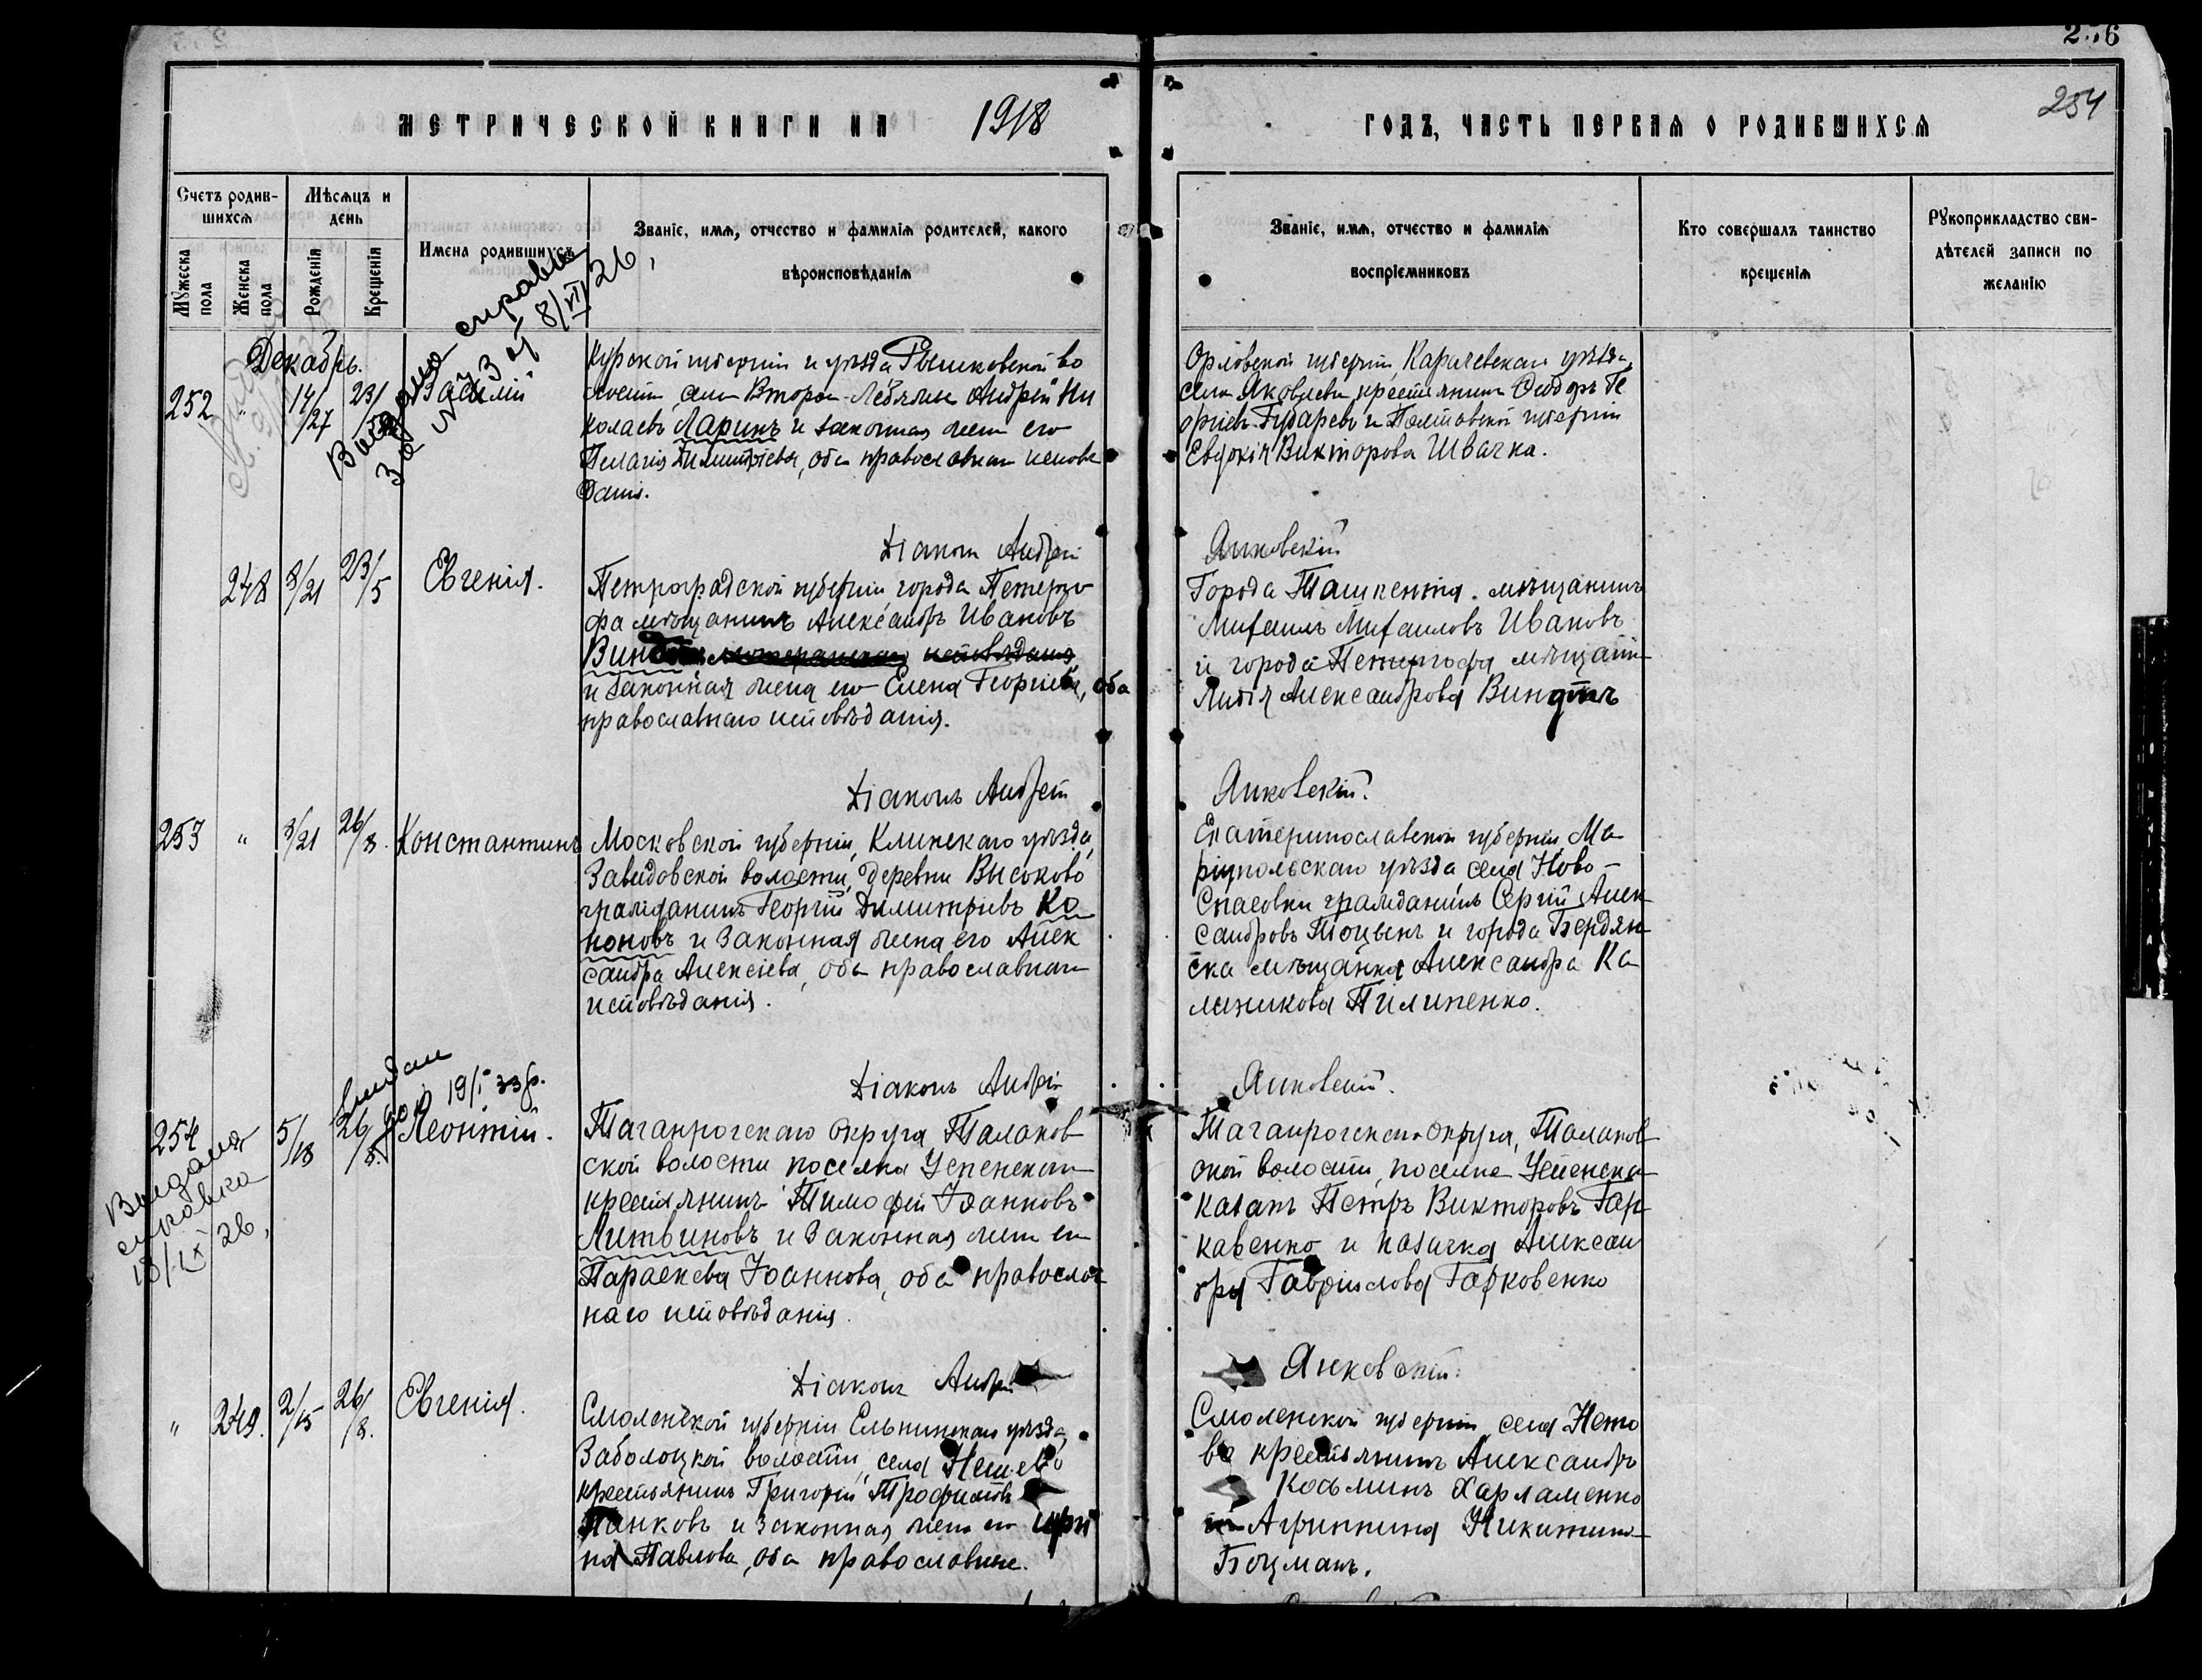 256
254
МЕТРИЧЕСКОЙ КНИГИ НА 1918
ГОДЪ, ЧАСТЬ ПЕРВАЯ О РОДИВШИХСЯ
Счетъ родив-
шихся
Мужеска
пола
Женска
пола
Мѣсяцъ и
день
Рожденія
Крещенія
Имена родившихся
Званіе, имя, отчество и фамилія родителей, какого
вѣроисповѣданія
Званіе, имя, отчество и фамилія
воспріемниковъ
Кто совершалъ таинство
крещенія
Рукоприкладство сви-
дѣтелей записи по
желанію
Декабрь.
252 " 14/27 23/5 Василій
Выдана справка
За № 8/VII 26,
Курской губерніи и уѣзда Рышковской во
лости, села Второе Лебяжье Андрей Ни
колаевъ Ларинъ и законная жена его
Пелагія Димитріева, оба православнаго исповѣ
данія.
Орловской губерніи, Карачевскаго уѣзда,
села Яковлева крестьянинъ Ѳеодоръ Ге
оргіевъ Губаревъ и Полтавской губерніи
Евдокія Викторова Швачка.
Діаконъ Андрей Янковскій
248 8/21 23/5 Евгенія.
Петроградской губерніи города Петерго
фа мѣщанинъ Александръ Ивановъ
Вин
и законная жена его Елена Георгіева, оба
православнаго исповѣданія.
Города Ташкента мѣщанинъ
Михаилъ Михаиловъ Ивановъ
и города Петергофа мѣщан
Лидія Александрова
Діаконъ Андрей Янковскій.
253 " 8/21 26/8. Константинъ
Московской губерніи, Клинскаго уѣзда,
Завидовской волости, деревни Высоково
гражданинъ Георгій Димитріевъ Ко
ноновъ и законная жена его Алек
сандра Алексіева, оба православнаго
исповѣданія.
Екатеринославской губерніи, Ма
ріупольскаго уѣзда села Ново-
Спасовки гражданинъ Сергій Алек
сандровъ Тоцынъ и города Бердян
ска мѣщанка Александра Ка
линикова Пилипенко.
Діаконъ Андрей Янковскій.
254 5/18 26/8. Леонтій.
19/I 33 г.
Выдана
справка
18/IX 26,
Таганрогскаго округа, Таланов
ской волости поселка Успенскаго
крестьянинъ Тимофей Іоанновъ
Литвиновъ и законная жена его
Параскева Іоаннова, оба православ
наго исповѣданія.
Таганрогскаго округа, Таланов
ской волости, поселка Успенска
казакъ Петръ Викторовъ Гар
кавенко и казачка Алексан
дра Гавріилова Гарковенко
Діаконъ Андрей Янковскій.
" 249. 2/15 26/8. Евгенія.
Смоленской губерніи Ельнинскаго уѣзда,
Заболоцкой волости, села
крестьянинъ Григорій Трофимовъ
Панковъ и законная жена его Ири
на Павлова, оба православные.
Смоленской губерніи села
во крестьянинъ Александръ
Косьминъ Харламенко
и Агриппина Никитина
Боцманъ.